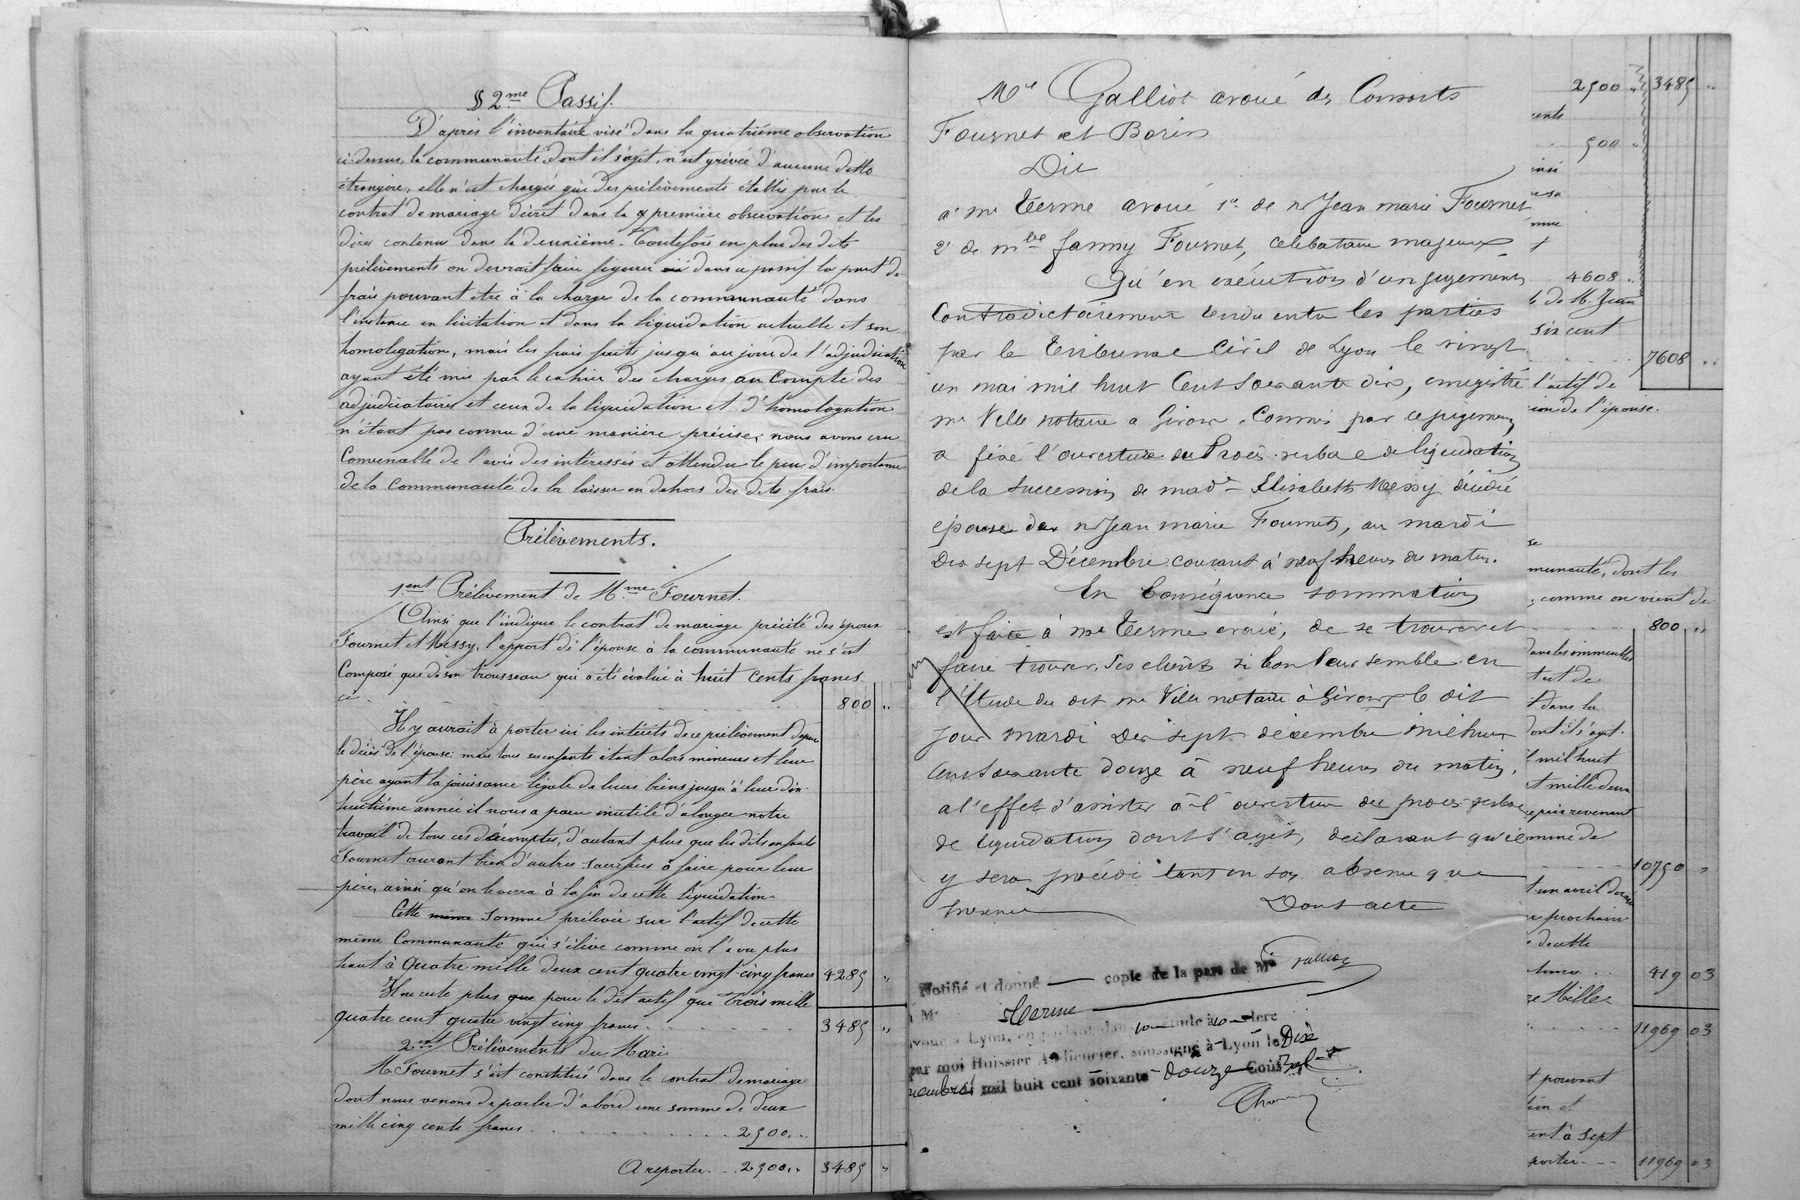 § 2.me Passif.
D'après l'inventaire visé dans la quatrième observation
ci-dessus, la communauté dont il s'agit, n'est grévée d'aucune dette
étrangère, elle n'est chargée que des prélèvements établis par le
contrat de mariage décrit dans la première observation et les
dires contenus dans la deuxième. Toutefois en plus des dits
prélèvements on devrait faire figurer dans ce passif la part de
frais pouvant etre à la charge de la communauté dans
l'instance en licitation et dans la liquidation actuelle et son
homologation, mais les frais faits jusqu'au jour de l'adjudication
ayant été mis par le cahier des charges au compte des
adjudicataires et ceux de la liquidation et d'homologation
n'étant pas connu d'une manière précise, nous avons cru
Convenable de l'avis des intéressés et attendu le peu d'importance
de la communauté de la laisser en dehors des dits frais.
Prélèvements.
1.ent Prélèvement de Mme Fournet.
Ainsi que l'indique le contrat de mariage précité des époux
Fournet et Messy, l'apport de l'épouse à la communauté ne s'est
Composé que de son trousseau qui a été évalué à huit cents francs
ci 800 "
Il y aurait à porter ici les intérêts de ce prélèvement depuis
le décès de l'épouse: mais tous ses enfants étant alors mineures et leur
père ayant la jouissance légale de leurs biens jusqu'à leur dix
huitième année il nous a paru inutile d'alonger notre
travail de tous ces décomptes, d'autant plus que les dits enfants
Fournet auront bien d'autres sacrifices à faire pour leur
père, ainsi qu'on le verra à la fin de cette liquidation.
Cette même somme prélevée sur l'actif de cette
même Communauté qui s'élève comme on l'a vu plus
haut à Quatre mille deux cent quatre vingt cinq francs 4285 "
Il ne reste plus que pour le dit actif que trois mille
quatre cent quatre vingt cinq francs 3485 "
2.ent Prélèvements du Mari
M. Fournet s'est constitué dans le contrat de mariage
dont nous venons de parler d'abord une somme de deux
mille cinq cents francs 2500 "
A reporter 2500 " 3485 "
Me Galliot avoué des Consorts
Fournet et Borin
Dit
à Me Terme avoué 1° de Mr Jean marie Fournet
2° de Mlle fanny Fournet, célibataire majeure
Qu'en exécution d'un jugement
Contradictoirement rendu entre les parties
par le Tribunal Civil de Lyon le vingt
un mai mil huit Cent soixante dix, enregistré
Me Ville notaire a Givors, Commis par ce jugement
a fixé l'ouverture du Procès-verbal de liquidation
de la succession de made Elisabeth Messy décédée
épouse de Mr Jean marie Fournet, au mardi
Dix sept Décembre courant à neuf heures du matin.
En Conséquence sommation
est faite à Me Terme avoué, de se trouver et
faire trouver ses clients si bon leur semble en
l'Etude du dit Me Ville notaire à Givors le dit
jour mardi dix sept décembre mil huit
cent soixante douze à neuf heures du matin,
a l'effet d'assister à l'ouverture du procès verbal
de liquidation dont s'agit, déclarant qu'il
y sera procédé tant en son absence que
présence Dont acte
Notifié et donné copie de la part de Me Galliot
à Me Terme
avoué à Lyon, en parlant dans son étude à son clerc
par moi Huissier Audiencier, soussigné à Lyon le Dix
décembre mil huit cent soixante douze Cout
2500 " 3485 "
500 "
4608 "
de M. Jean
six cent
7608 "
l'actif de
ion de l'épouse.
munauté, dont les
comme on vient de
800 "
dans les immeubles
dans la
dont il s'agit.
mil huit
mille deux
revenant
mme de
10750 "
un avril dernier
prochain
de cette
419 03
Mille
11969 03
pouvant
tion et
cent à sept
porter 11969 03